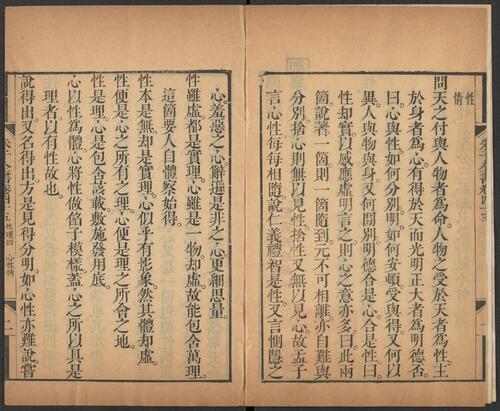 性情
問天之付與人物者爲命。人物之受於天者爲性。主
於身者爲心。有得於天而光明正大者爲明德否。
曰。心與性如何分別。明如何安頓。受與得又何以
異。人與物與身又何間別。明德合是心合是性。曰。
性却實。以感應虛明言之。則心之意亦多。曰。此兩
箇說著一箇。則一箇隨到。元不可相離。亦自難與
分別。捨心則無以見性。捨性又無以見心。故孟子
言心性每每相隨說。仁義禮智是性。又言惻隱之
心。羞惡之心。辭遜是非之心。更細思量。
性雖虛。都是實理。心雖是一物。却虛。故能包含萬理。
這箇要人自體察始得。
性本是無。却是實理。心似乎有影象。然其體却虛。
性便是心之所有之理。心便是理之所會之地。
性是理。心是包含該載。敷施發用底。
心以性爲體。心將性做餡子模樣。蓋心之所以具是
理者。以有性故也。
說得出。又名得出。方是見得分明。如心性亦難說。嘗
性理四 心性情
二